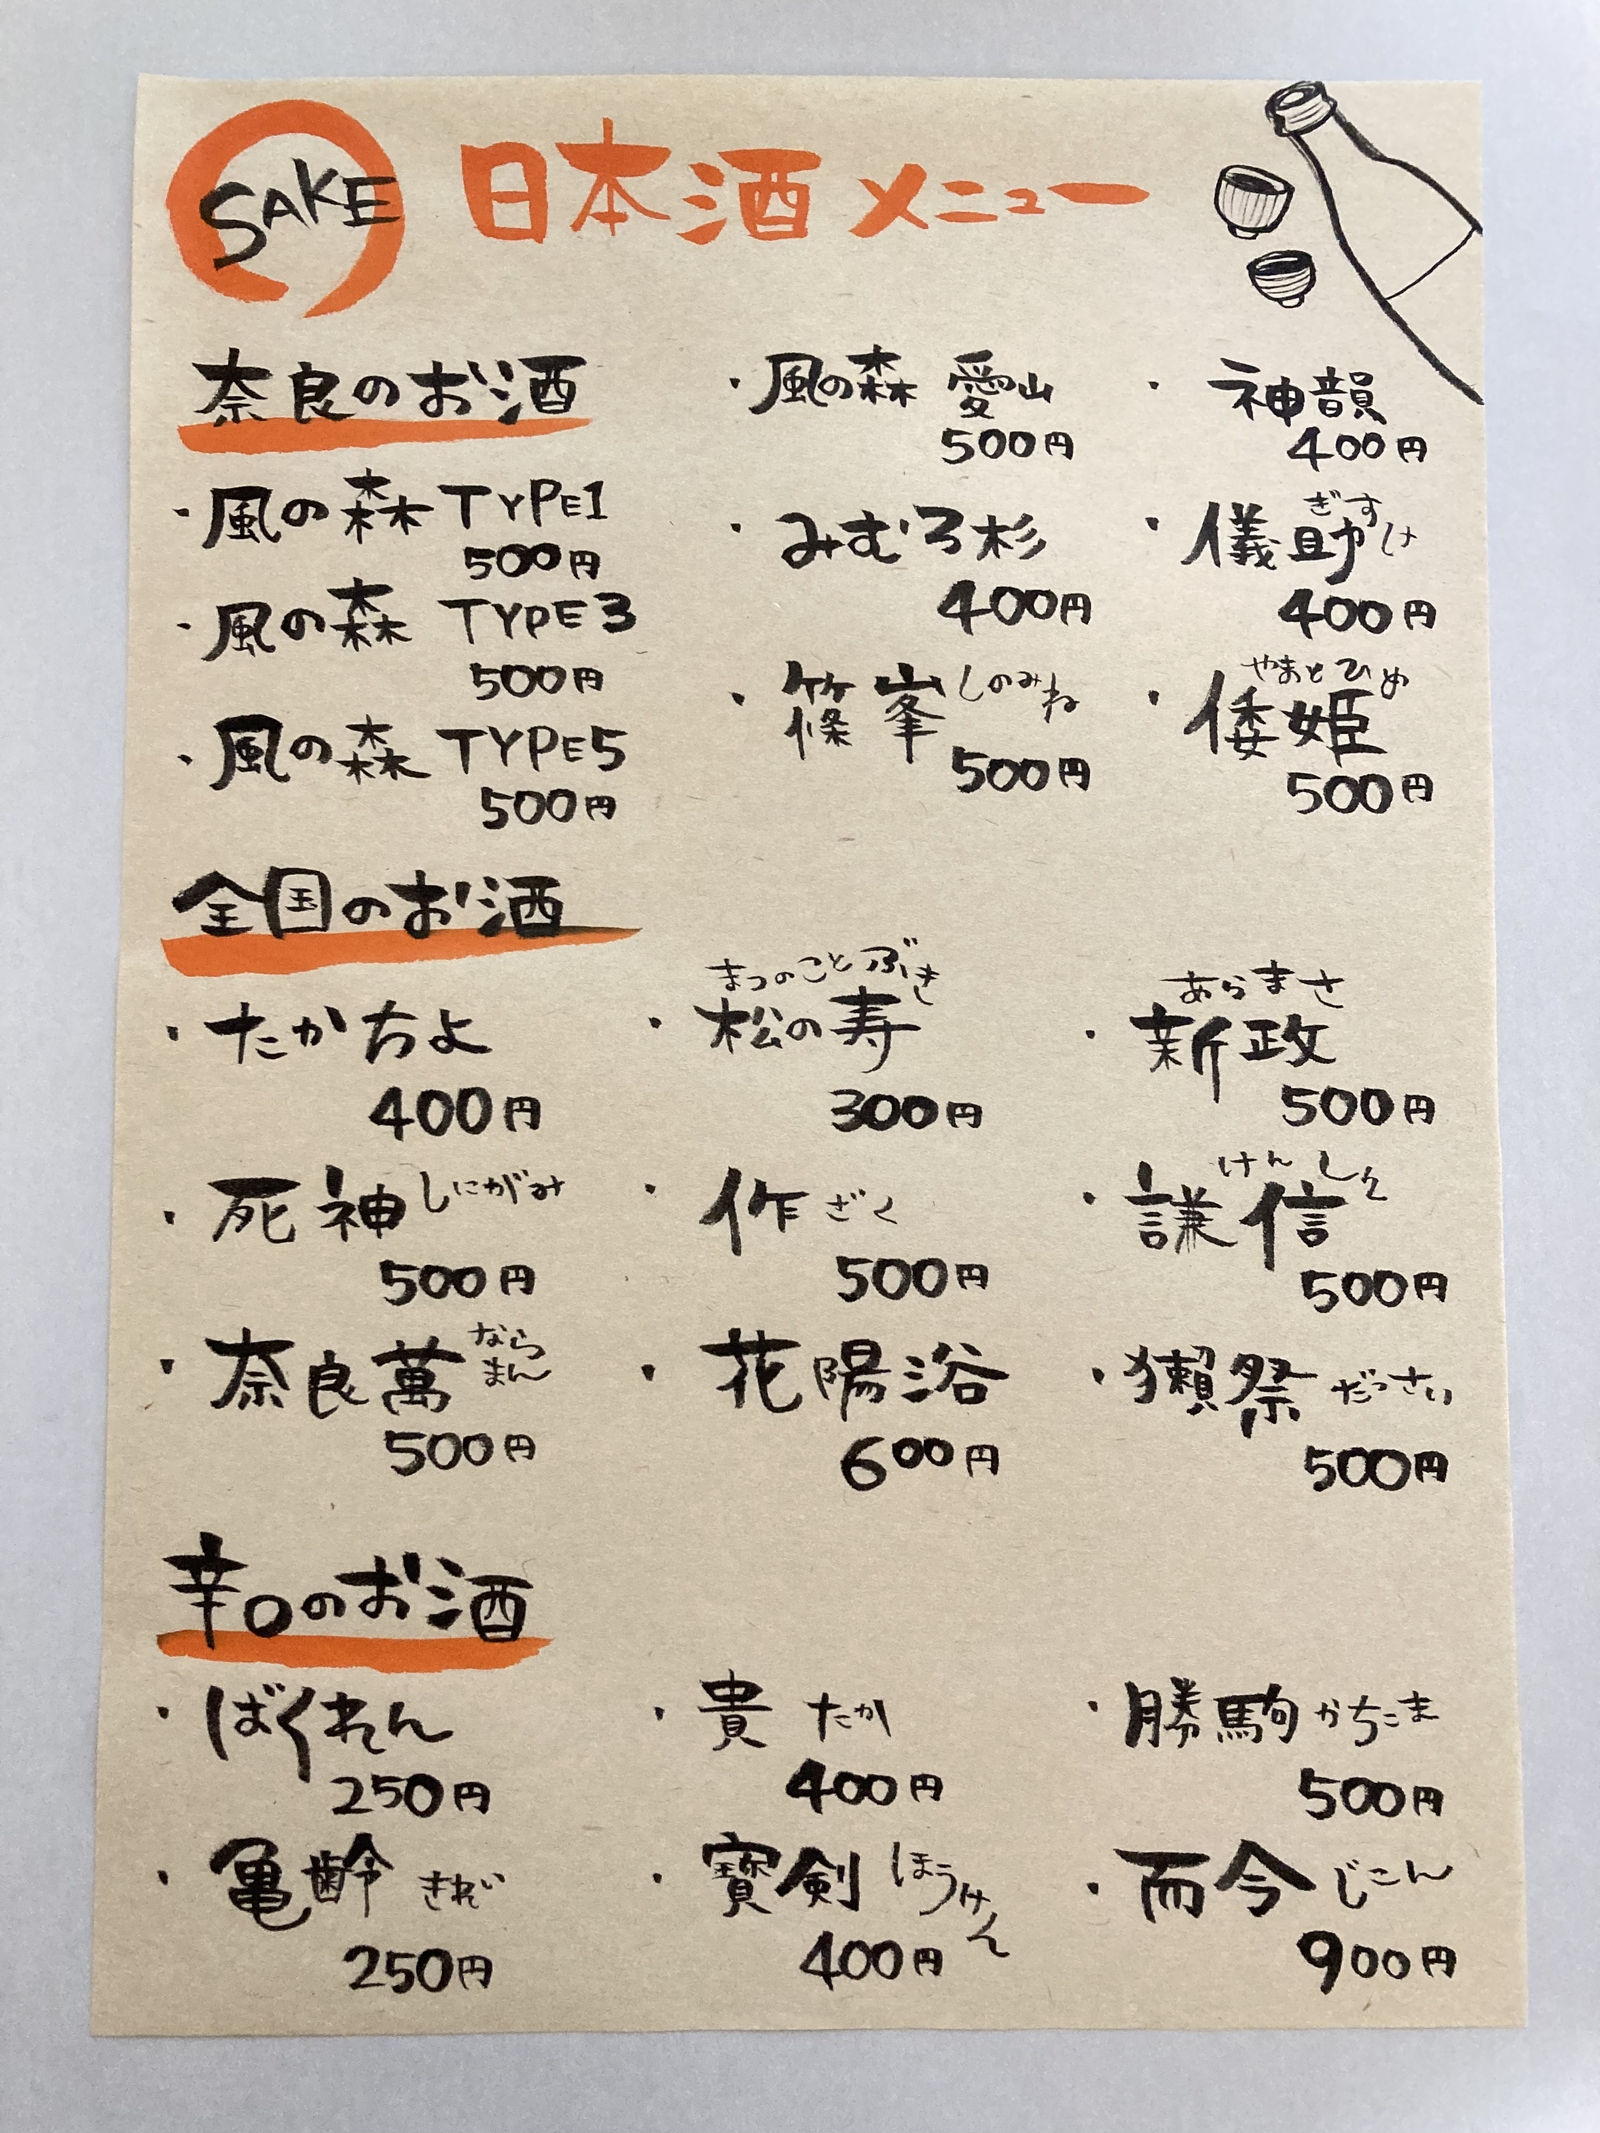 SAKE
日本酒メニュー
奈良のお酒
・風の森 TYPE1
500円
・風の森 TYPE3
500円
・風の森 TYPE5
500円
・風の森 愛山
500円
・みむろ杉
400円
・篠峯 しのみね
500円
・神韻
400円
・儀助 ぎすけ
400円
やまとひめ
・倭姫
500円
全国のお酒
・たかちよ
400円
・死神 しにがみ
500円
・奈良萬 ならまん
500円
まつのことぶき
・松の寿
300円
・作 ざく
500円
・花陽浴
600円
あらまさ
・新政
500円
けんしん
・謙信
500円
・獺祭 だっさい
500円
辛口のお酒
・ばくれん
250円
・亀齢 きれい
250円
・貴 たか
400円
・寶剣 ほうけん
400円
・勝駒 かちこま
500円
・而今 じこん
900円